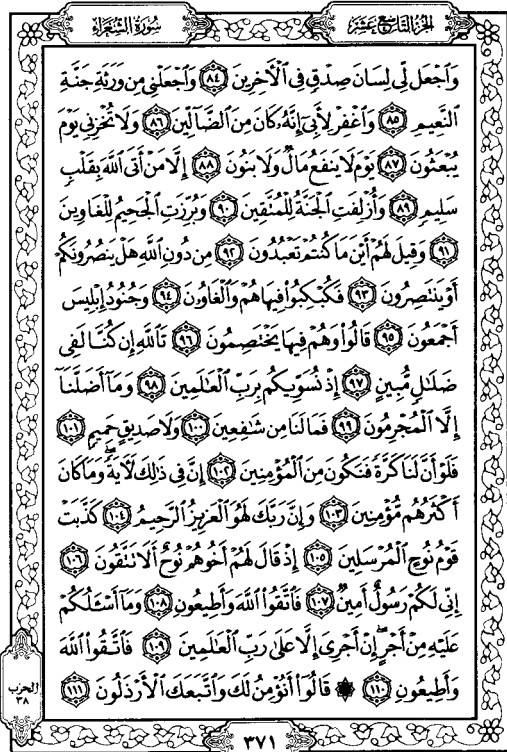 الجزء التاسع عشر
سورة الشعراء
وَاجْعَل لِّي لِسَانَ صِدْقٍ فِي الْآخِرِينَ ٨٤ وَاجْعَلْنِي مِن وَرَثَةِ جَنَّةِ
النَّعِيمِ ٨٥ وَاغْفِرْ لِأَبِي إِنَّهُ كَانَ مِنَ الضَّالِّينَ ٨٦ وَلَا تُخْزِنِي يَوْمَ
يُبْعَثُونَ ٨٧ يَوْمَ لَا يَنفَعُ مَالٌ وَلَا بَنُونَ ٨٨ إِلَّا مَنْ أَتَى اللَّهَ بِقَلْبٍ
سَلِيمٍ ٨٩ وَأُزْلِفَتِ الْجَنَّةُ لِلْمُتَّقِينَ ٩٠ وَبُرِّزَتِ الْجَحِيمُ لِلْغَاوِينَ
٩١ وَقِيلَ لَهُمْ أَيْنَ مَا كُنتُمْ تَعْبُدُونَ ٩٢ مِن دُونِ اللَّهِ هَلْ يَنصُرُونَكُمْ
أَوْ يَنتَصِرُونَ ٩٣ فَكُبْكِبُوا فِيهَا هُمْ وَالْغَاوُونَ ٩٤ وَجُنُودُ إِبْلِيسَ
أَجْمَعُونَ ٩٥ قَالُوا وَهُمْ فِيهَا يَخْتَصِمُونَ ٩٦ تَاللَّهِ إِن كُنَّا لَفِي
ضَلَالٍ مُّبِينٍ ٩٧ إِذْ نُسَوِّيكُم بِرَبِّ الْعَالَمِينَ ٩٨ وَمَا أَضَلَّنَا
إِلَّا الْمُجْرِمُونَ ٩٩ فَمَا لَنَا مِن شَافِعِينَ ١٠٠ وَلَا صَدِيقٍ حَمِيمٍ ١٠١
فَلَوْ أَنَّ لَنَا كَرَّةً فَنَكُونَ مِنَ الْمُؤْمِنِينَ ١٠٢ إِنَّ فِي ذَٰلِكَ لَآيَةً ۖ وَمَا كَانَ
أَكْثَرُهُم مُّؤْمِنِينَ ١٠٣ وَإِنَّ رَبَّكَ لَهُوَ الْعَزِيزُ الرَّحِيمُ ١٠٤ كَذَّبَتْ
قَوْمُ نُوحٍ الْمُرْسَلِينَ ١٠٥ إِذْ قَالَ لَهُمْ أَخُوهُمْ نُوحٌ أَلَا تَتَّقُونَ ١٠٦
إِنِّي لَكُمْ رَسُولٌ أَمِينٌ ١٠٧ فَاتَّقُوا اللَّهَ وَأَطِيعُونِ ١٠٨ وَمَا أَسْأَلُكُمْ
عَلَيْهِ مِنْ أَجْرٍ ۖ إِنْ أَجْرِيَ إِلَّا عَلَىٰ رَبِّ الْعَالَمِينَ ١٠٩ فَاتَّقُوا اللَّهَ
وَأَطِيعُونِ ١١٠ ۞ قَالُوا أَنُؤْمِنُ لَكَ وَاتَّبَعَكَ الْأَرْذَلُونَ ١١١
الحزب
٣٨
٣٧١